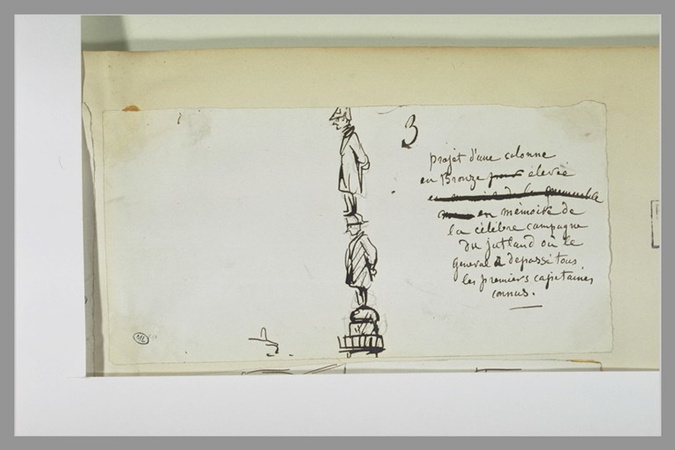 3
projet d'une colonne
en Bronze pour élevée
en mémoire de
la célèbre campagne
du jutland ou le
General a dépassé tous
les premiers capitaines
connus.